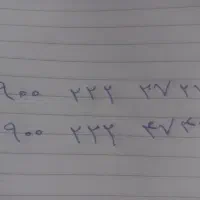 ۹۰۰ ۲۲۲ ۲۷
۹۰۰ ۲۲۲ ۴۷